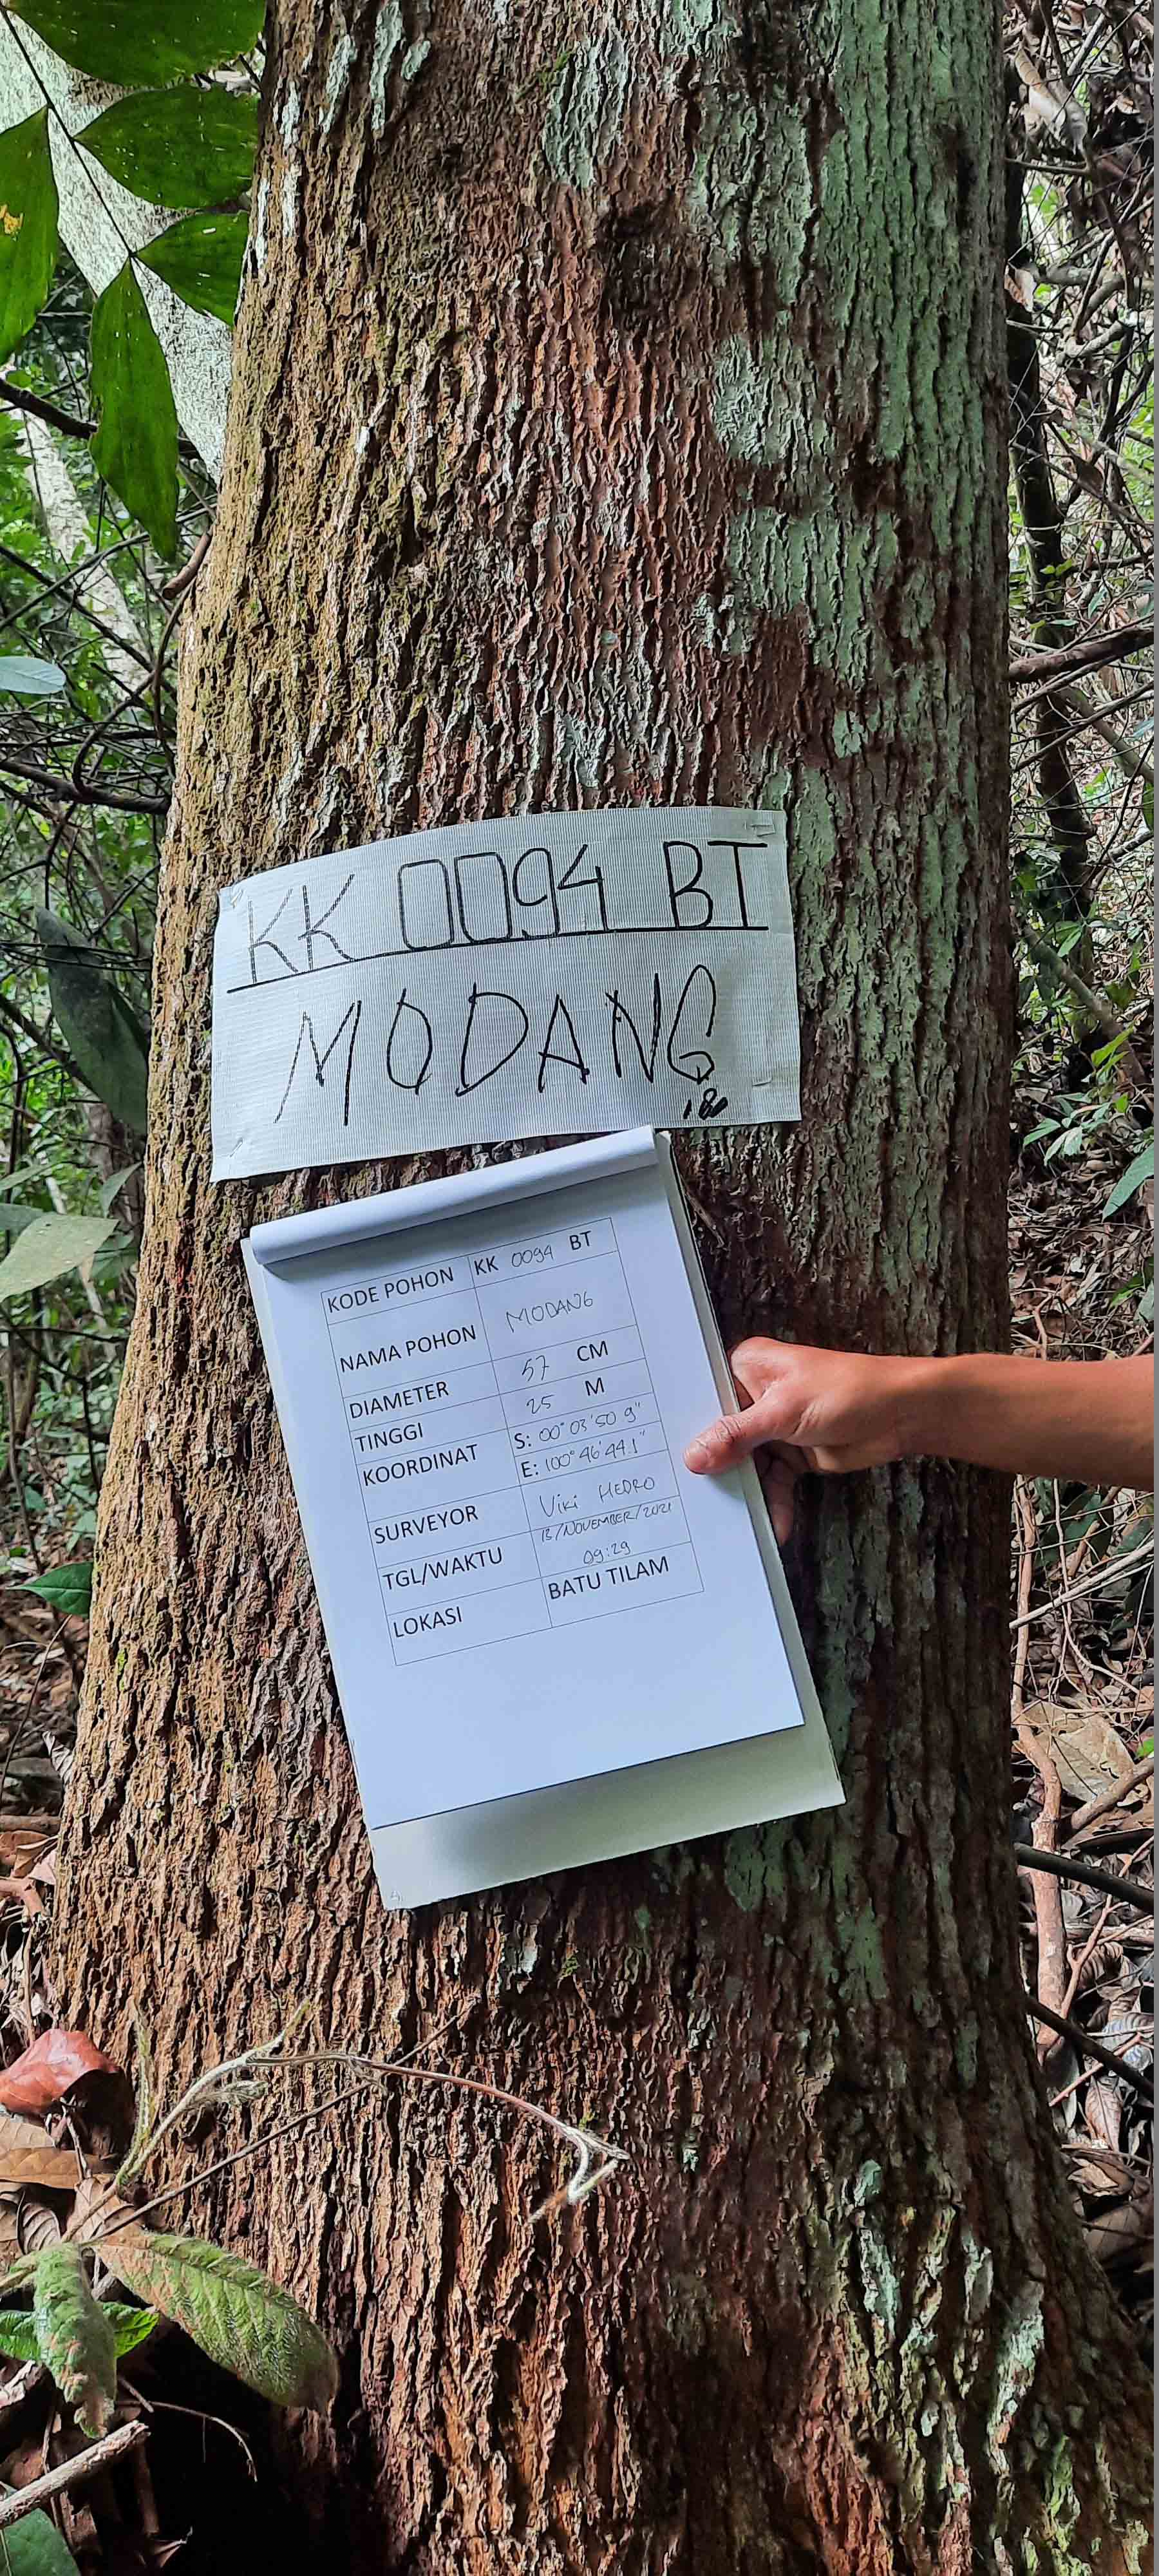 KK 0094 BT
MODANG
KODE POHON KK 0094 BT
NAMA POHON MODANG
DIAMETER 57 CM
TINGGI 25 M
KOORDINAT S: 00° 03' 50 9"
E: 100° 46' 44.1"
SURVEYOR Viki HEDRO
TGL/WAKTU 13/NOVEMBER/2021
09:29
LOKASI BATU TILAM